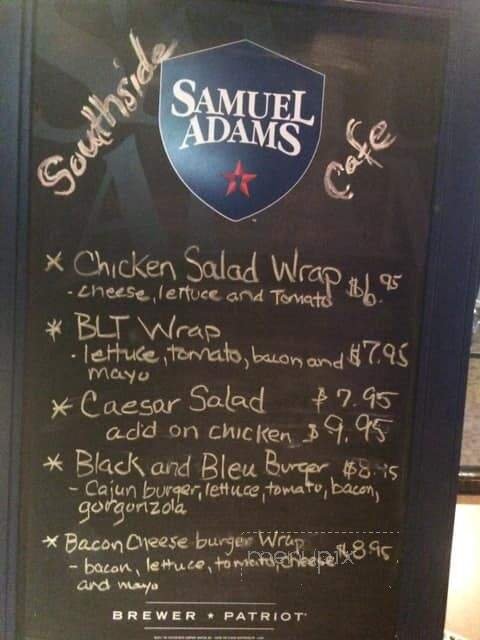 Southside Cafe
SAMUEL
ADAMS
* Chicken Salad Wrap $6.95
- cheese, lettuce and Tomato
* BLT Wrap
- lettuce, tomato, bacon and $7.95
mayo
* Caesar Salad $7.95
add on chicken $9.95
* Black and Bleu Burger
- Cajun burger, lettuce, tomato, bacon,
gorgonzola
* Bacon Cheese burger Wrap $8.95
- bacon, lettuce, tomato, cheese
and mayo
menupix
BREWER ★ PATRIOT